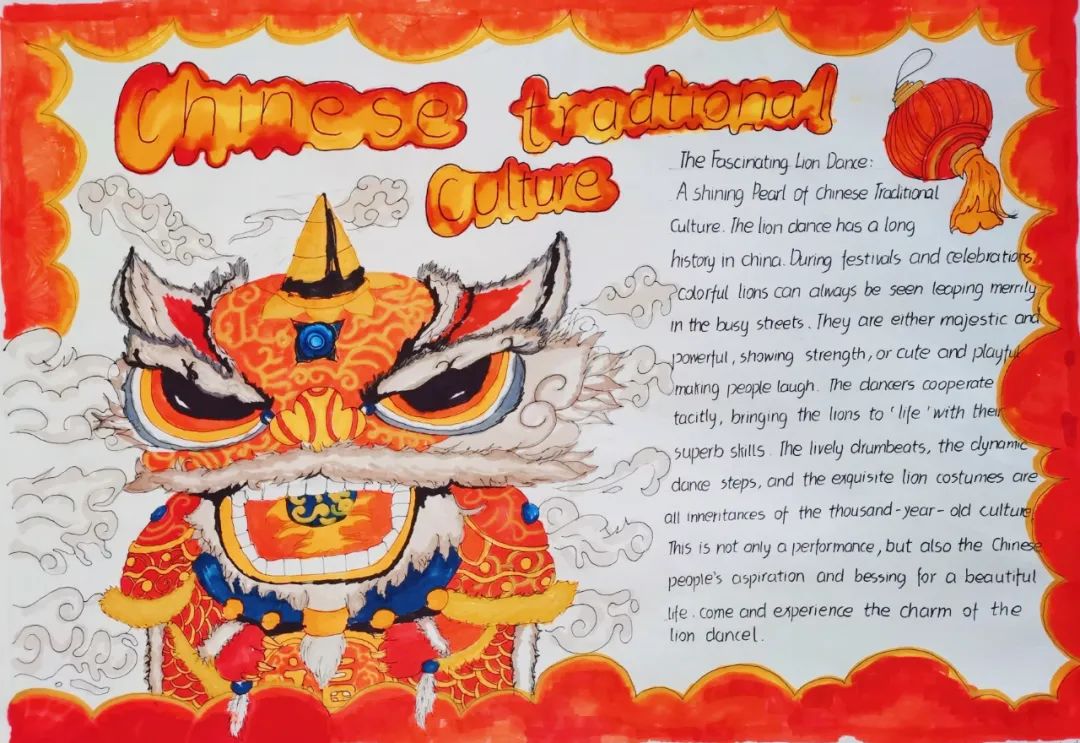 Chinese tradtional
Culture
The Fascinating Lion Dance:
A shining Pearl of Chinese Traditional
Culture. The lion dance has a long
history in china. During festivals and celebrations,
colorful lions can always be seen leaping merrily
in the busy streets. They are either majestic and
powerful, showing strength, or cute and playful
making people laugh. The dancers cooperate
tacitly, bringing the lions to 'life' with their
superb skills. The lively drumbeats, the dynamic
dance steps, and the exquisite lion costumes are
all inneritances of the thousand-year-old culture
This is not only a performance, but also the Chinese
people's aspiration and bessing for a beautiful
life. come and experience the charm of the
lion dancel.